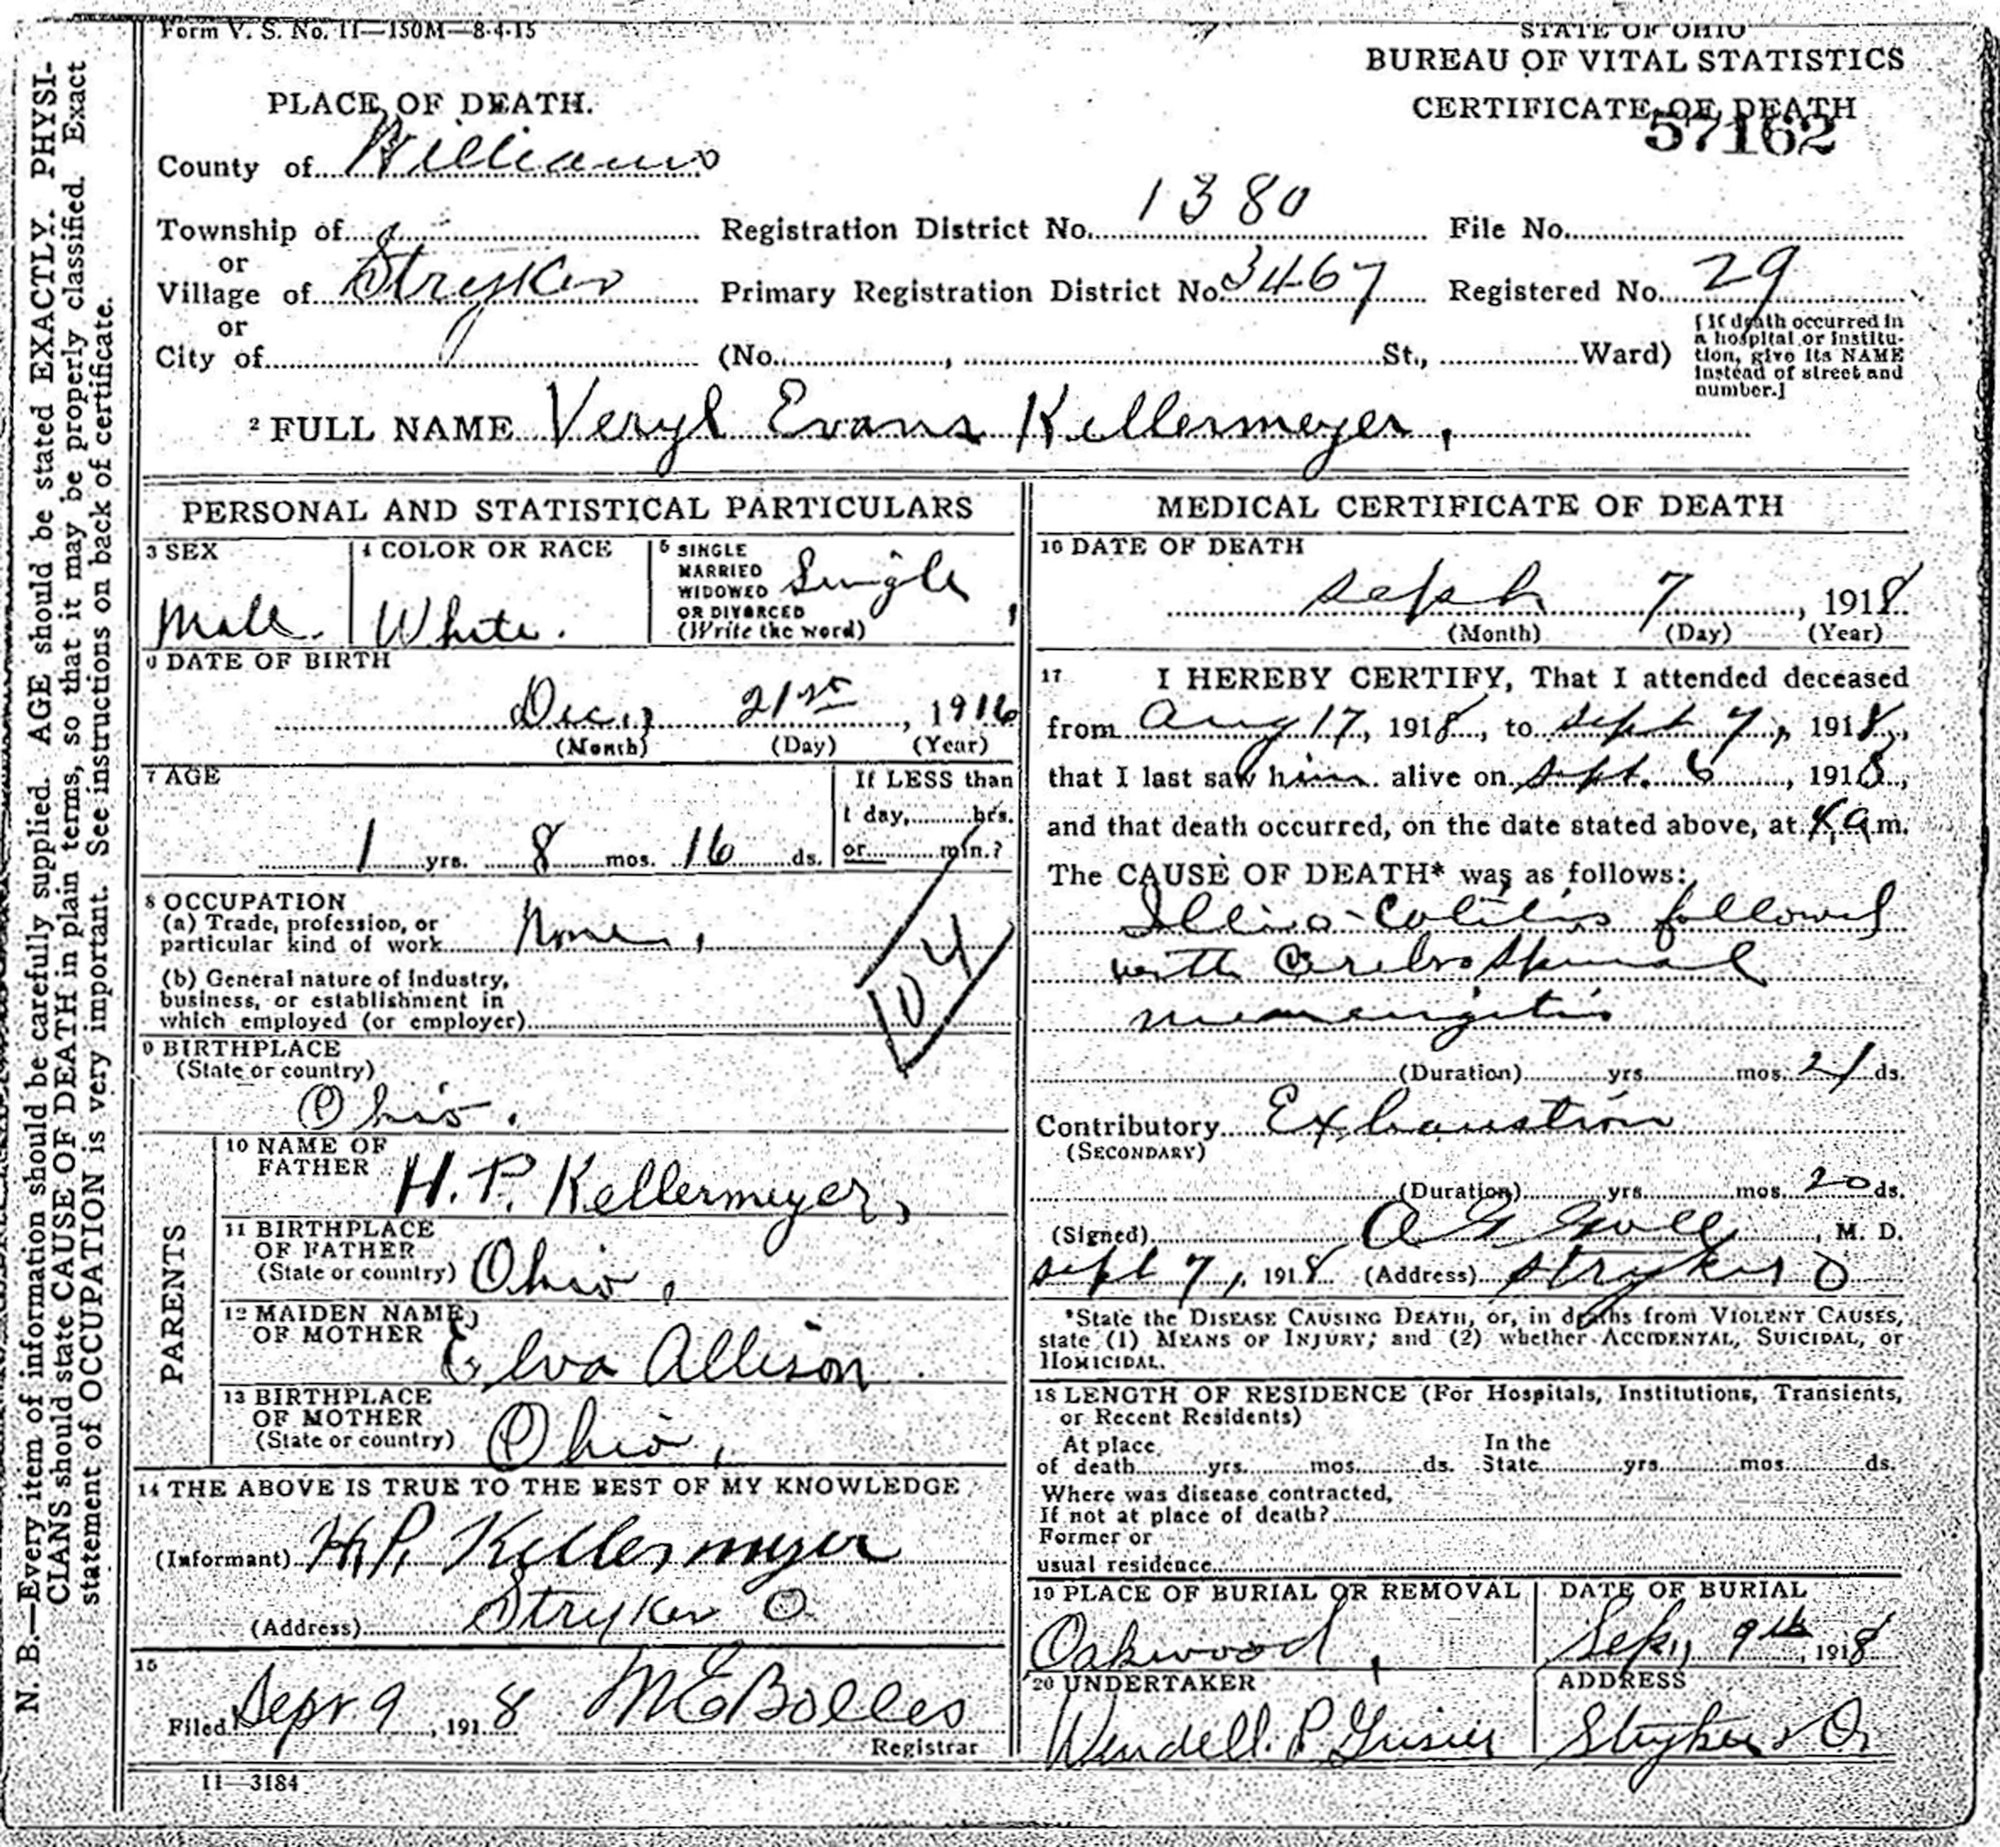 Form V. S. No. 11—150M—8-4-15
STATE OF OHIO
BUREAU OF VITAL STATISTICS
CERTIFICATE OF DEATH
57162
PLACE OF DEATH.
County of Williams
Township of Registration District No. 1380 File No.
or
Village of Stryker Primary Registration District No. 3467 Registered No. 29
or
City of (No. , St., Ward)
[If death occurred in
a hospital or institu-
tion, give its NAME
instead of street and
number.]
2 FULL NAME Veryl Evans Kellermeyer,
PERSONAL AND STATISTICAL PARTICULARS
3 SEX
Male.
4 COLOR OR RACE
White.
5 SINGLE
MARRIED
WIDOWED
OR DIVORCED
(Write the word)
Single
6 DATE OF BIRTH
Dec., 21st, 1916
(Month) (Day) (Year)
7 AGE
1 yrs. 8 mos. 16 ds.
If LESS than
1 day, hrs.
or min.?
8 OCCUPATION
(a) Trade, profession, or
particular kind of work None,
(b) General nature of industry,
business, or establishment in
which employed (or employer)
104
9 BIRTHPLACE
(State or country)
Ohio.
PARENTS
10 NAME OF
FATHER H. P. Kellermeyer,
11 BIRTHPLACE
OF FATHER
(State or country) Ohio,
12 MAIDEN NAME
OF MOTHER Elva Allison
13 BIRTHPLACE
OF MOTHER
(State or country) Ohio,
14 THE ABOVE IS TRUE TO THE BEST OF MY KNOWLEDGE
(Informant) H.P. Kellermeyer
(Address) Stryker O.
15
Filed Sept. 9, 1918 M E Bolles
Registrar
11—3184
MEDICAL CERTIFICATE OF DEATH
16 DATE OF DEATH
Sept 7, 1918
(Month) (Day) (Year)
17 I HEREBY CERTIFY, That I attended deceased
from Aug 17, 1918, to Sept 7, 1918,
that I last saw him alive on Sept. 6, 1918,
and that death occurred, on the date stated above, at a.m.
The CAUSE OF DEATH* was as follows:
Illio-Colitis followed
with Cerebro Spinal
(Duration) yrs. mos. 21 ds.
Contributory Exhaustion
(SECONDARY)
(Duration) yrs. mos. 20 ds.
(Signed) A G , M. D.
Sept 7, 1918 (Address) Stryker O
*State the DISEASE CAUSING DEATH, or, in deaths from VIOLENT CAUSES,
state (1) MEANS OF INJURY; and (2) whether ACCIDENTAL, SUICIDAL, or
HOMICIDAL.
18 LENGTH OF RESIDENCE (For Hospitals, Institutions, Transients,
or Recent Residents)
At place
of death yrs. mos. ds.
In the
State yrs. mos. ds.
Where was disease contracted,
If not at place of death?
Former or
usual residence
19 PLACE OF BURIAL OR REMOVAL
Oakwood,
DATE OF BURIAL
Sep., 9th, 1918
20 UNDERTAKER
Wendell. P. Grisier
ADDRESS
Stryker O.
N. B.—Every item of information should be carefully supplied. AGE should be stated EXACTLY. PHYSI-
CIANS should state CAUSE OF DEATH in plain terms, so that it may be properly classified. Exact
statement of OCCUPATION is very important. See instructions on back of certificate.